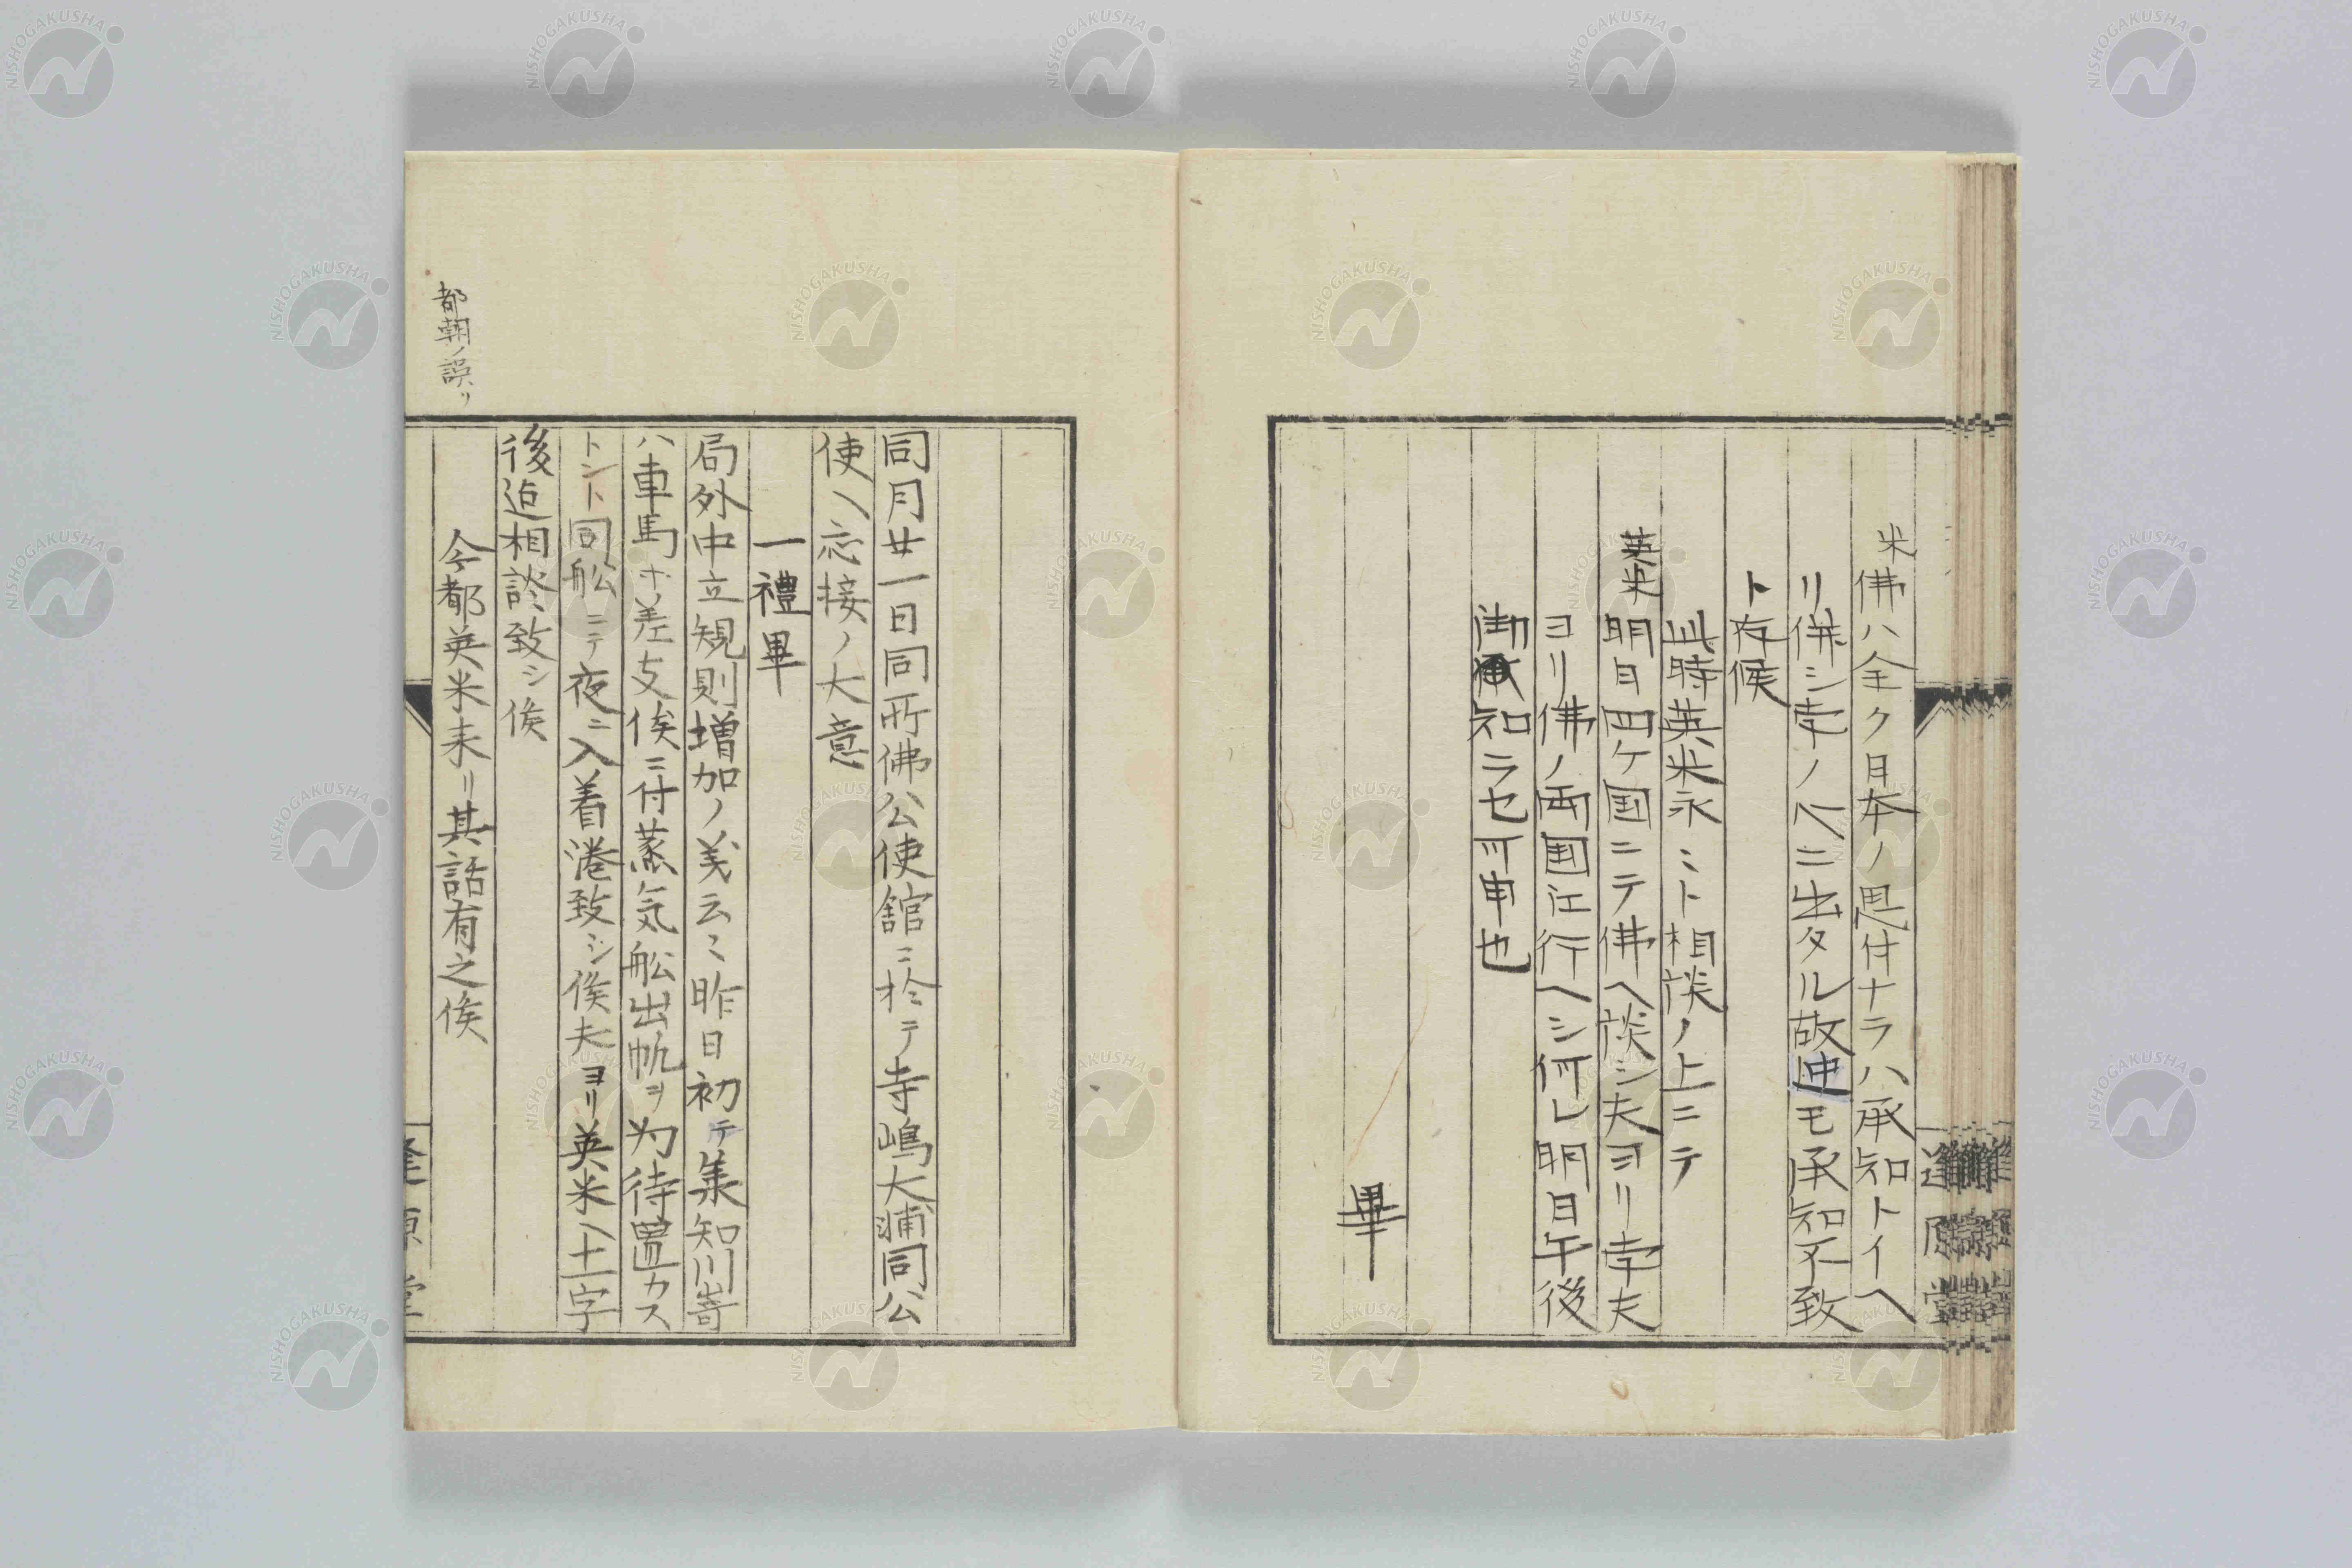 米
佛ハ全ク日本ノ思付ナラハ承知トイヘ
リ併シ孛ノヘニ出タル故迚モ承知不致
ト存候
此時英米永ミト相談ノ上ニテ
英米
明日四ケ国ニテ佛ヘ談シ夫ヨリ孛夫
ヨリ佛ノ両国江行ヘシ何レ明日午後
御承知ラセ可申也
畢
逢原堂
同月廿一日同所佛公使館ニ於テ寺嶋大浦同公
使ヘ応接ノ大意
一禮畢
局外中立規則増加ノ義云ミ昨日初テ集知川嵜
ハ車馬ホ差支候ニ付蒸気舩出帆ヲ为待置カス
トント同舩ニテ夜ニ入着港致シ候夫ヨリ英米ヘ十字
後迠相談致シ候
今都英米来リ其話有之候
都朝ノ誤リ
逢原堂
NISHOGAKUSHA